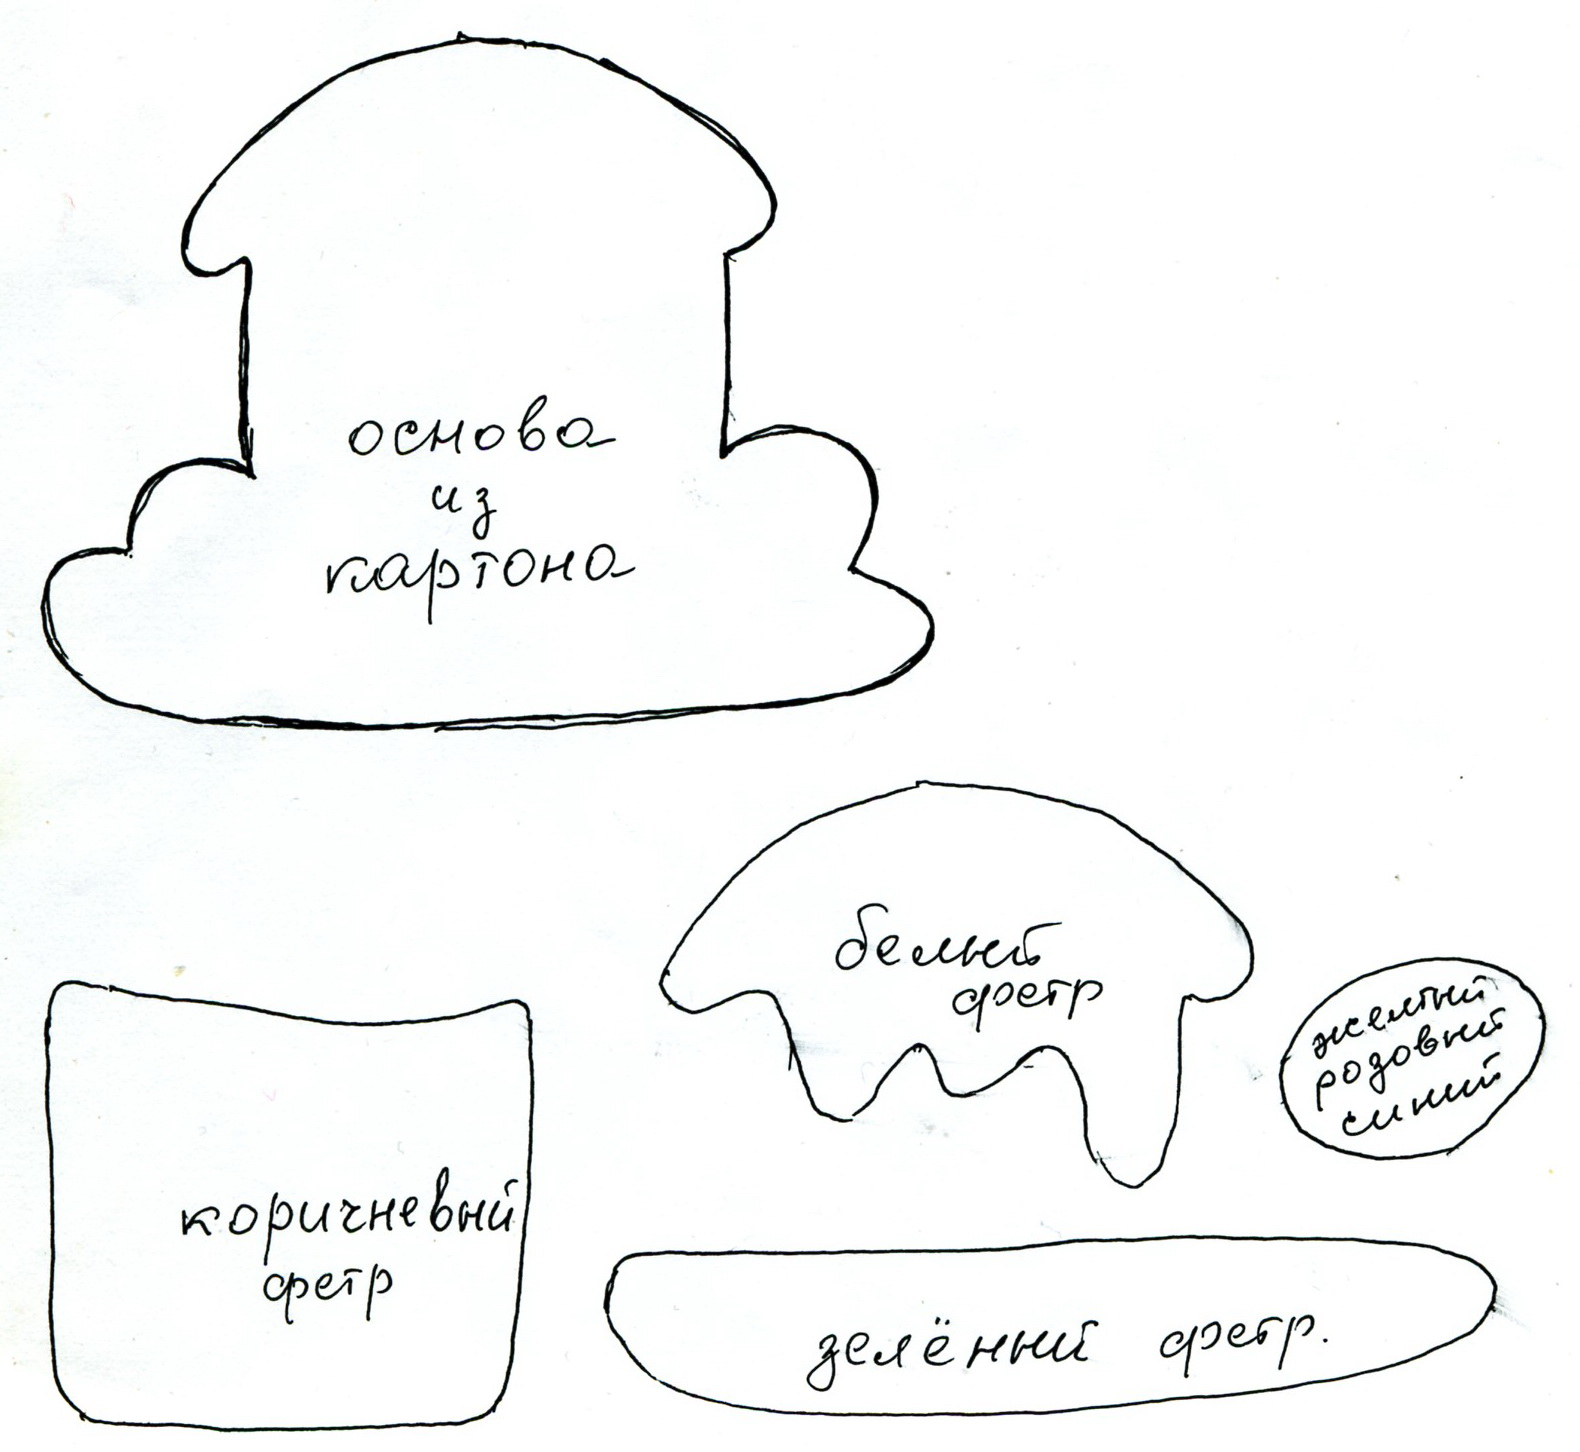 основа
из
картона
белый
фетр
желтый
розовый
синий
коричневый
фетр
зелёный фетр.